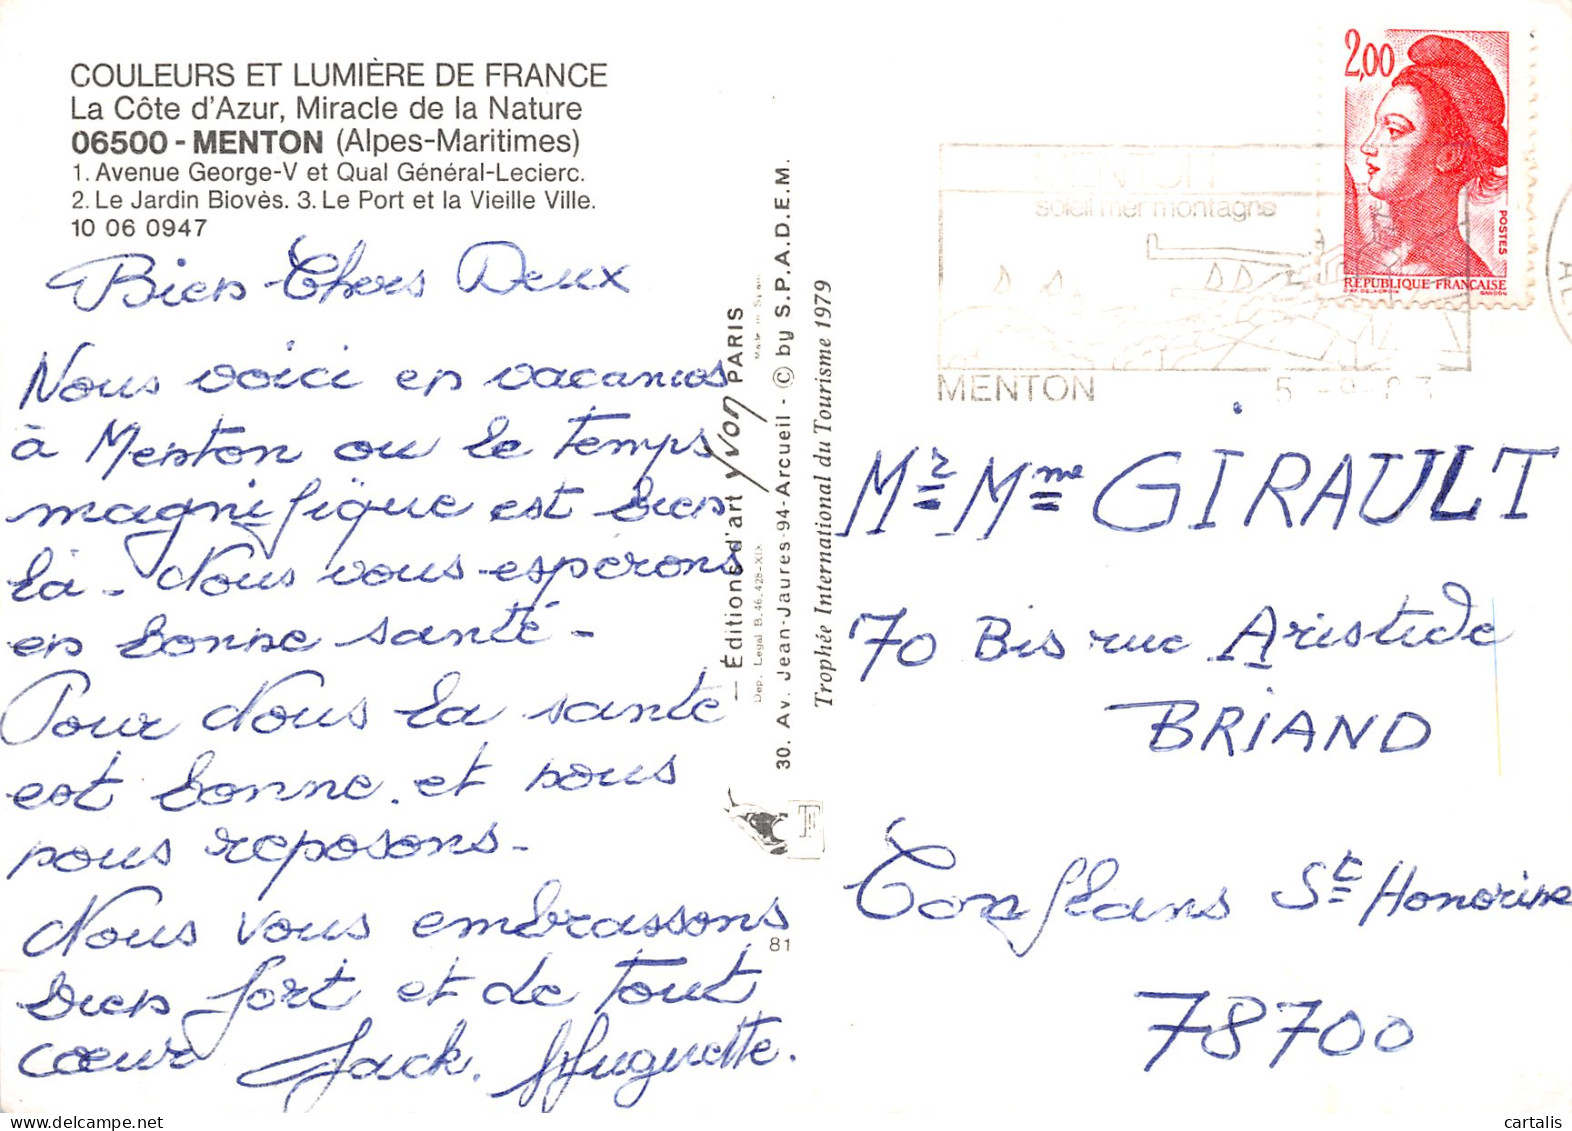 COULEURS ET LUMIÈRE DE FRANCE
La Côte d'Azur, Miracle de la Nature
06500 - MENTON (Alpes-Maritimes)
1. Avenue George-V et Qual Général-Lecierc.
2. Le Jardin Biovès. 3. Le Port et la Vieille Ville.
10 06 0947
Bien Chers Deux
Nous voici en vacances
à Menton ou le temps
magnifique est bien
là - Nous vous espérons
en bonne santé -
Pour Nous la santé
est bonne. et nous
nous reposons -
Nous vous embrassons
bien fort et de tout
cœur Jack. Huguette.
— Éditions d'art yvon PARIS
Dep. Legal B. 46.428-XIX Made in Spain
30. Av. Jean-Jaures-94-Arcueil - © by S.P.A.D.E.M.
Trophée International du Tourisme 1979
81
2,00
POSTES
RÉPUBLIQUE FRANÇAISE
D'AP. DELACROIX GANDON
MENTON
soleil mer montagne
MENTON
Mr Mme GIRAULT
70 Bis rue Aristide
BRIAND
Conflans St Honorine
78700
cartalis